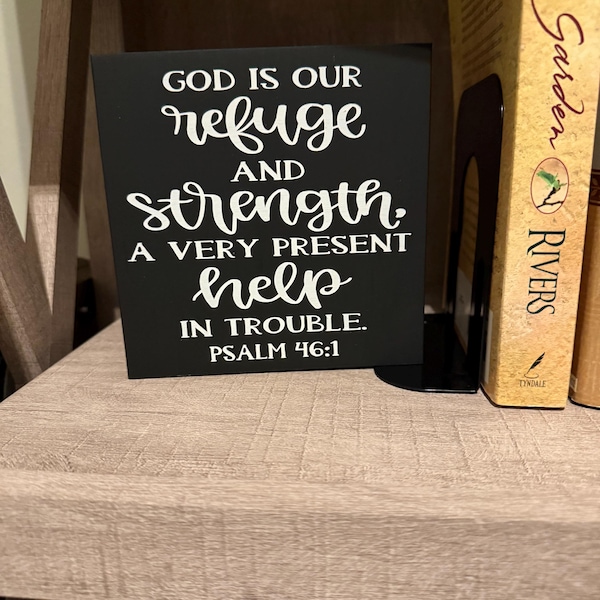 GOD IS OUR
refuge
AND
strength,
A VERY PRESENT
help
IN TROUBLE.
PSALM 46:1
Garden
RIVERS
TYNDALE